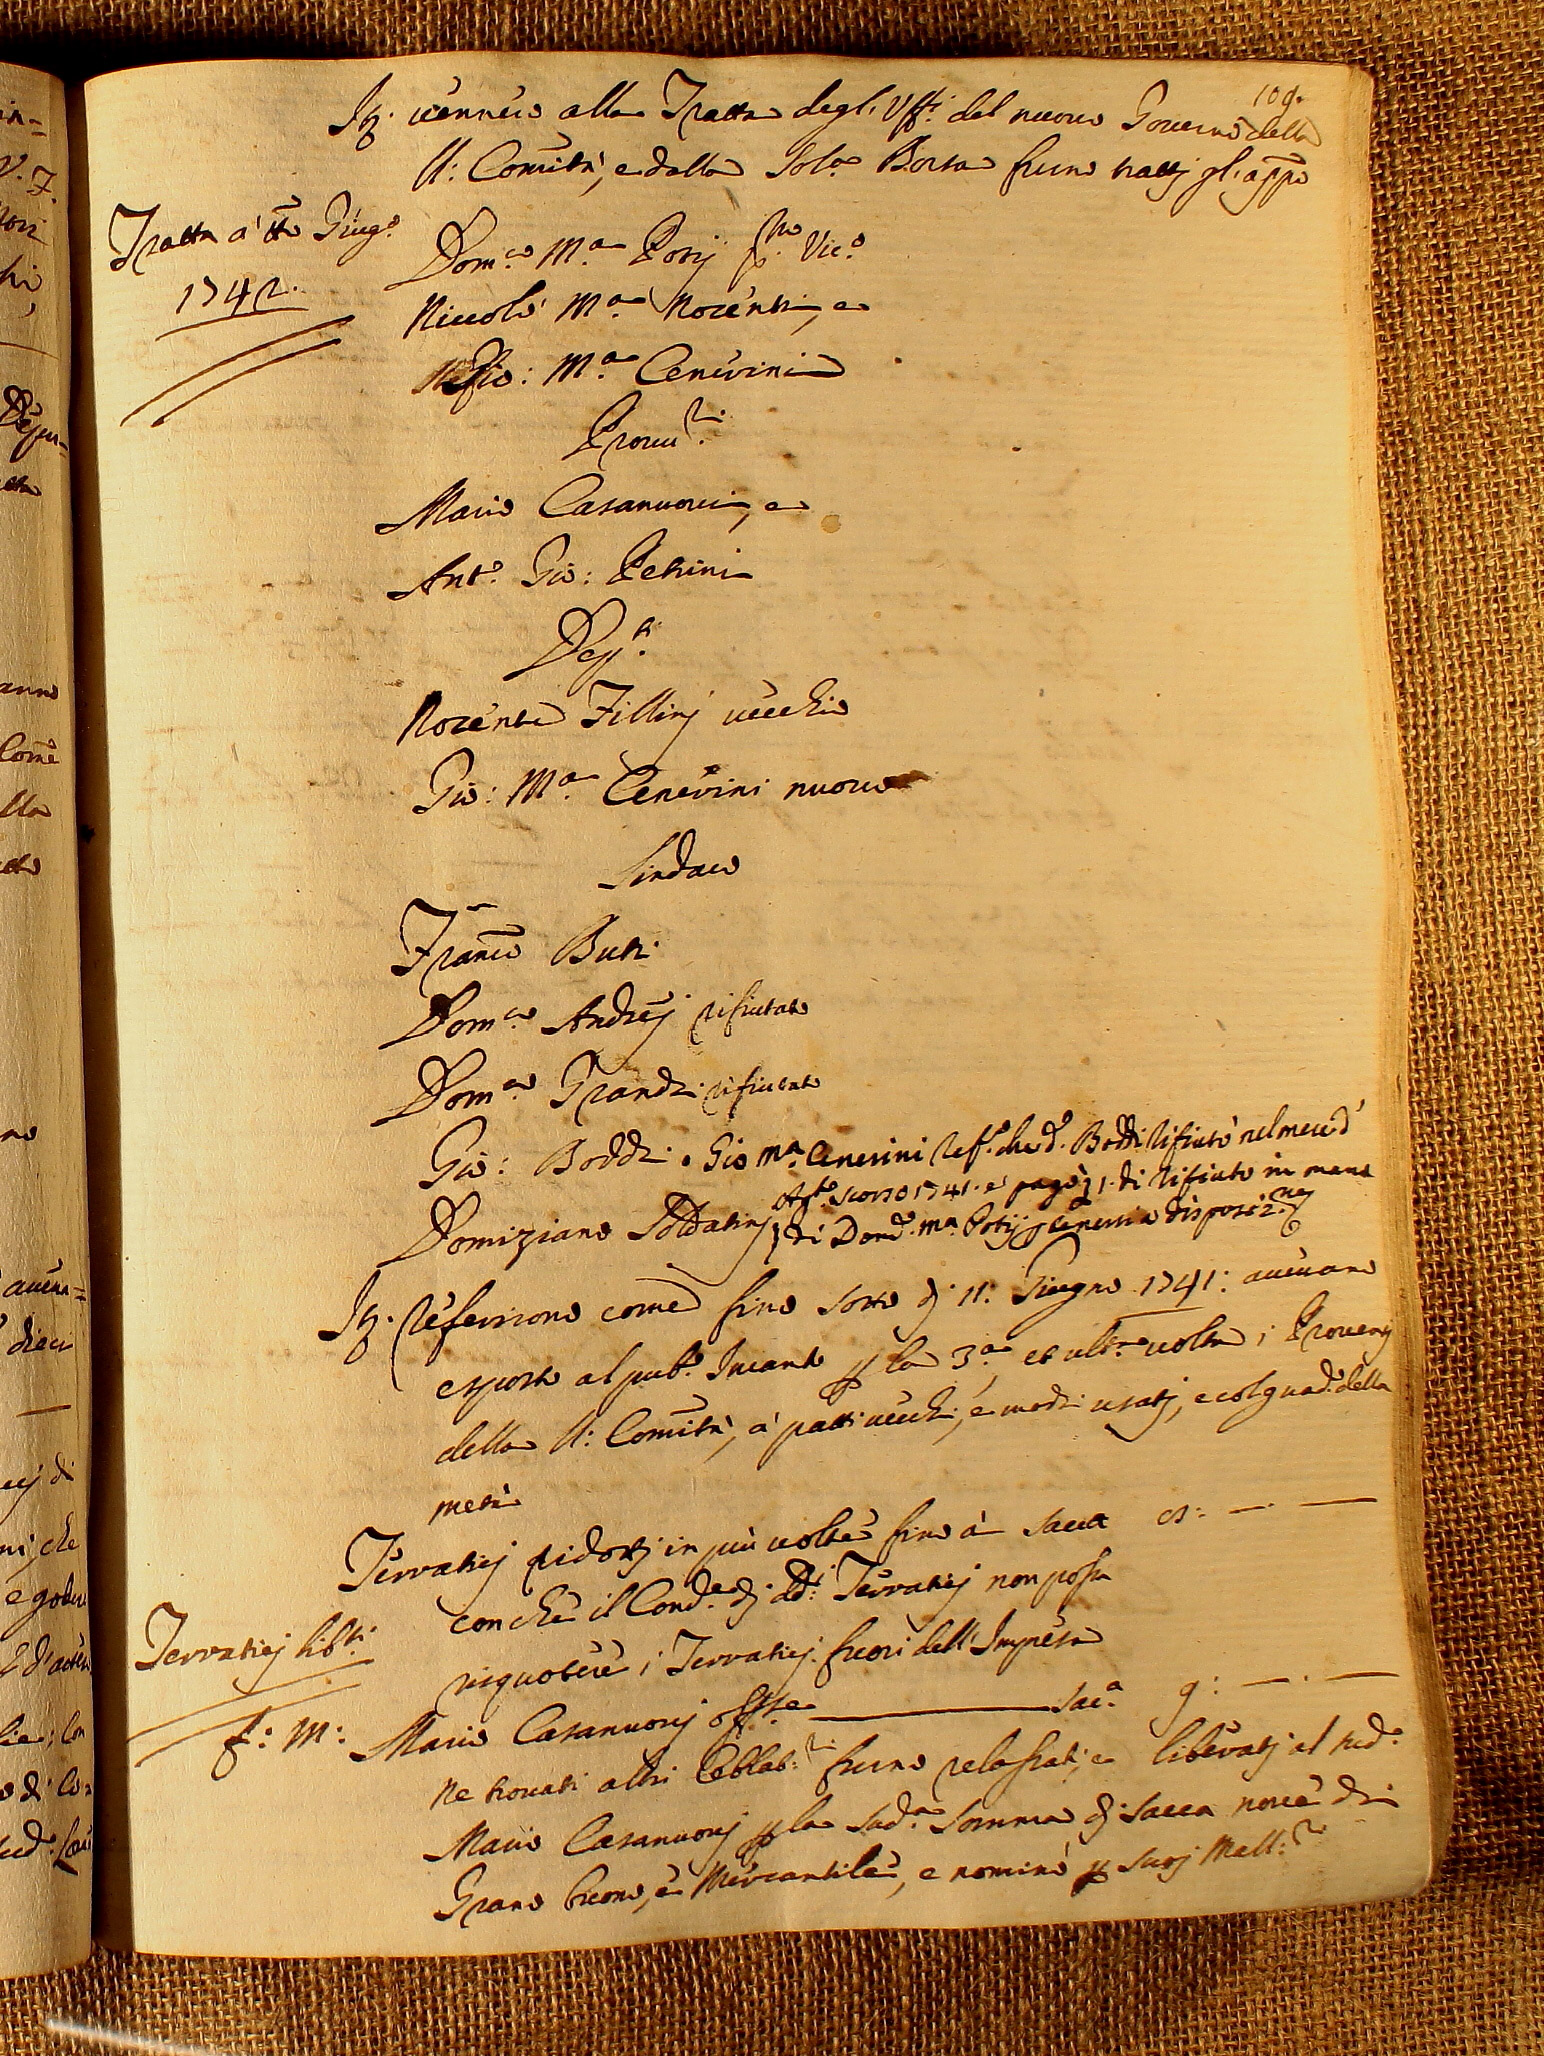 109.
Ip. vennero alla Tratta degl'Uffi: del nuovo Governo della
D: Comità, e dalla Sol.a Borsa furno tratti gl'appo
Tratta a' tto Giug.o
1742.
Dom.co M.a Posij Vic.o
Niccolò M.a Nocenti, e
Gio: M.a Cenerini
Mario Casanuovi, e
Ant.o Gio: Petrini
Dep.ti
Nocente Fillinj vecchio
Gio: M.a Cenerini nuovo
Sindaco
Franco Buti
Dom.co Andrej rifiutato
Dom.co Grandi rifiutato
Gio: Boddi. Gio M.a Cenerini Ref.e che d.o Boddi rifiutò nel mese d'
Ag.to scorso 1741. e pagò 1. di rifiuto in mano
Domiziano Soldatinj di Dom.co M.a Posij Cenerini disposiz.ne
Ip. Referirono come fino sotto dì 11: Giugno 1741: avevano
esposto al pub.o Incanto p la 3.a, et ult.a volta i Proventj
della D: Comità, a patti vecchi, e modi usatj, e col guad.o della
metà
Terratici ridottj in più volte fino a sacca
con che il Cond.e di dd.i Terratici non possa
risquotere i Terratici fuori dell'Impresa
Terratici lib.ti
f: M: Mario Casanuovj offese sac.a 9: —. —
Ne trovati altri Collat:ri furno rilasciati, e liberatj al sud.o
Mario Casanuovj p la sud.a somma di sacca nove di
Grano buono, e Mercantile, e nominò p suoj Mall:ri